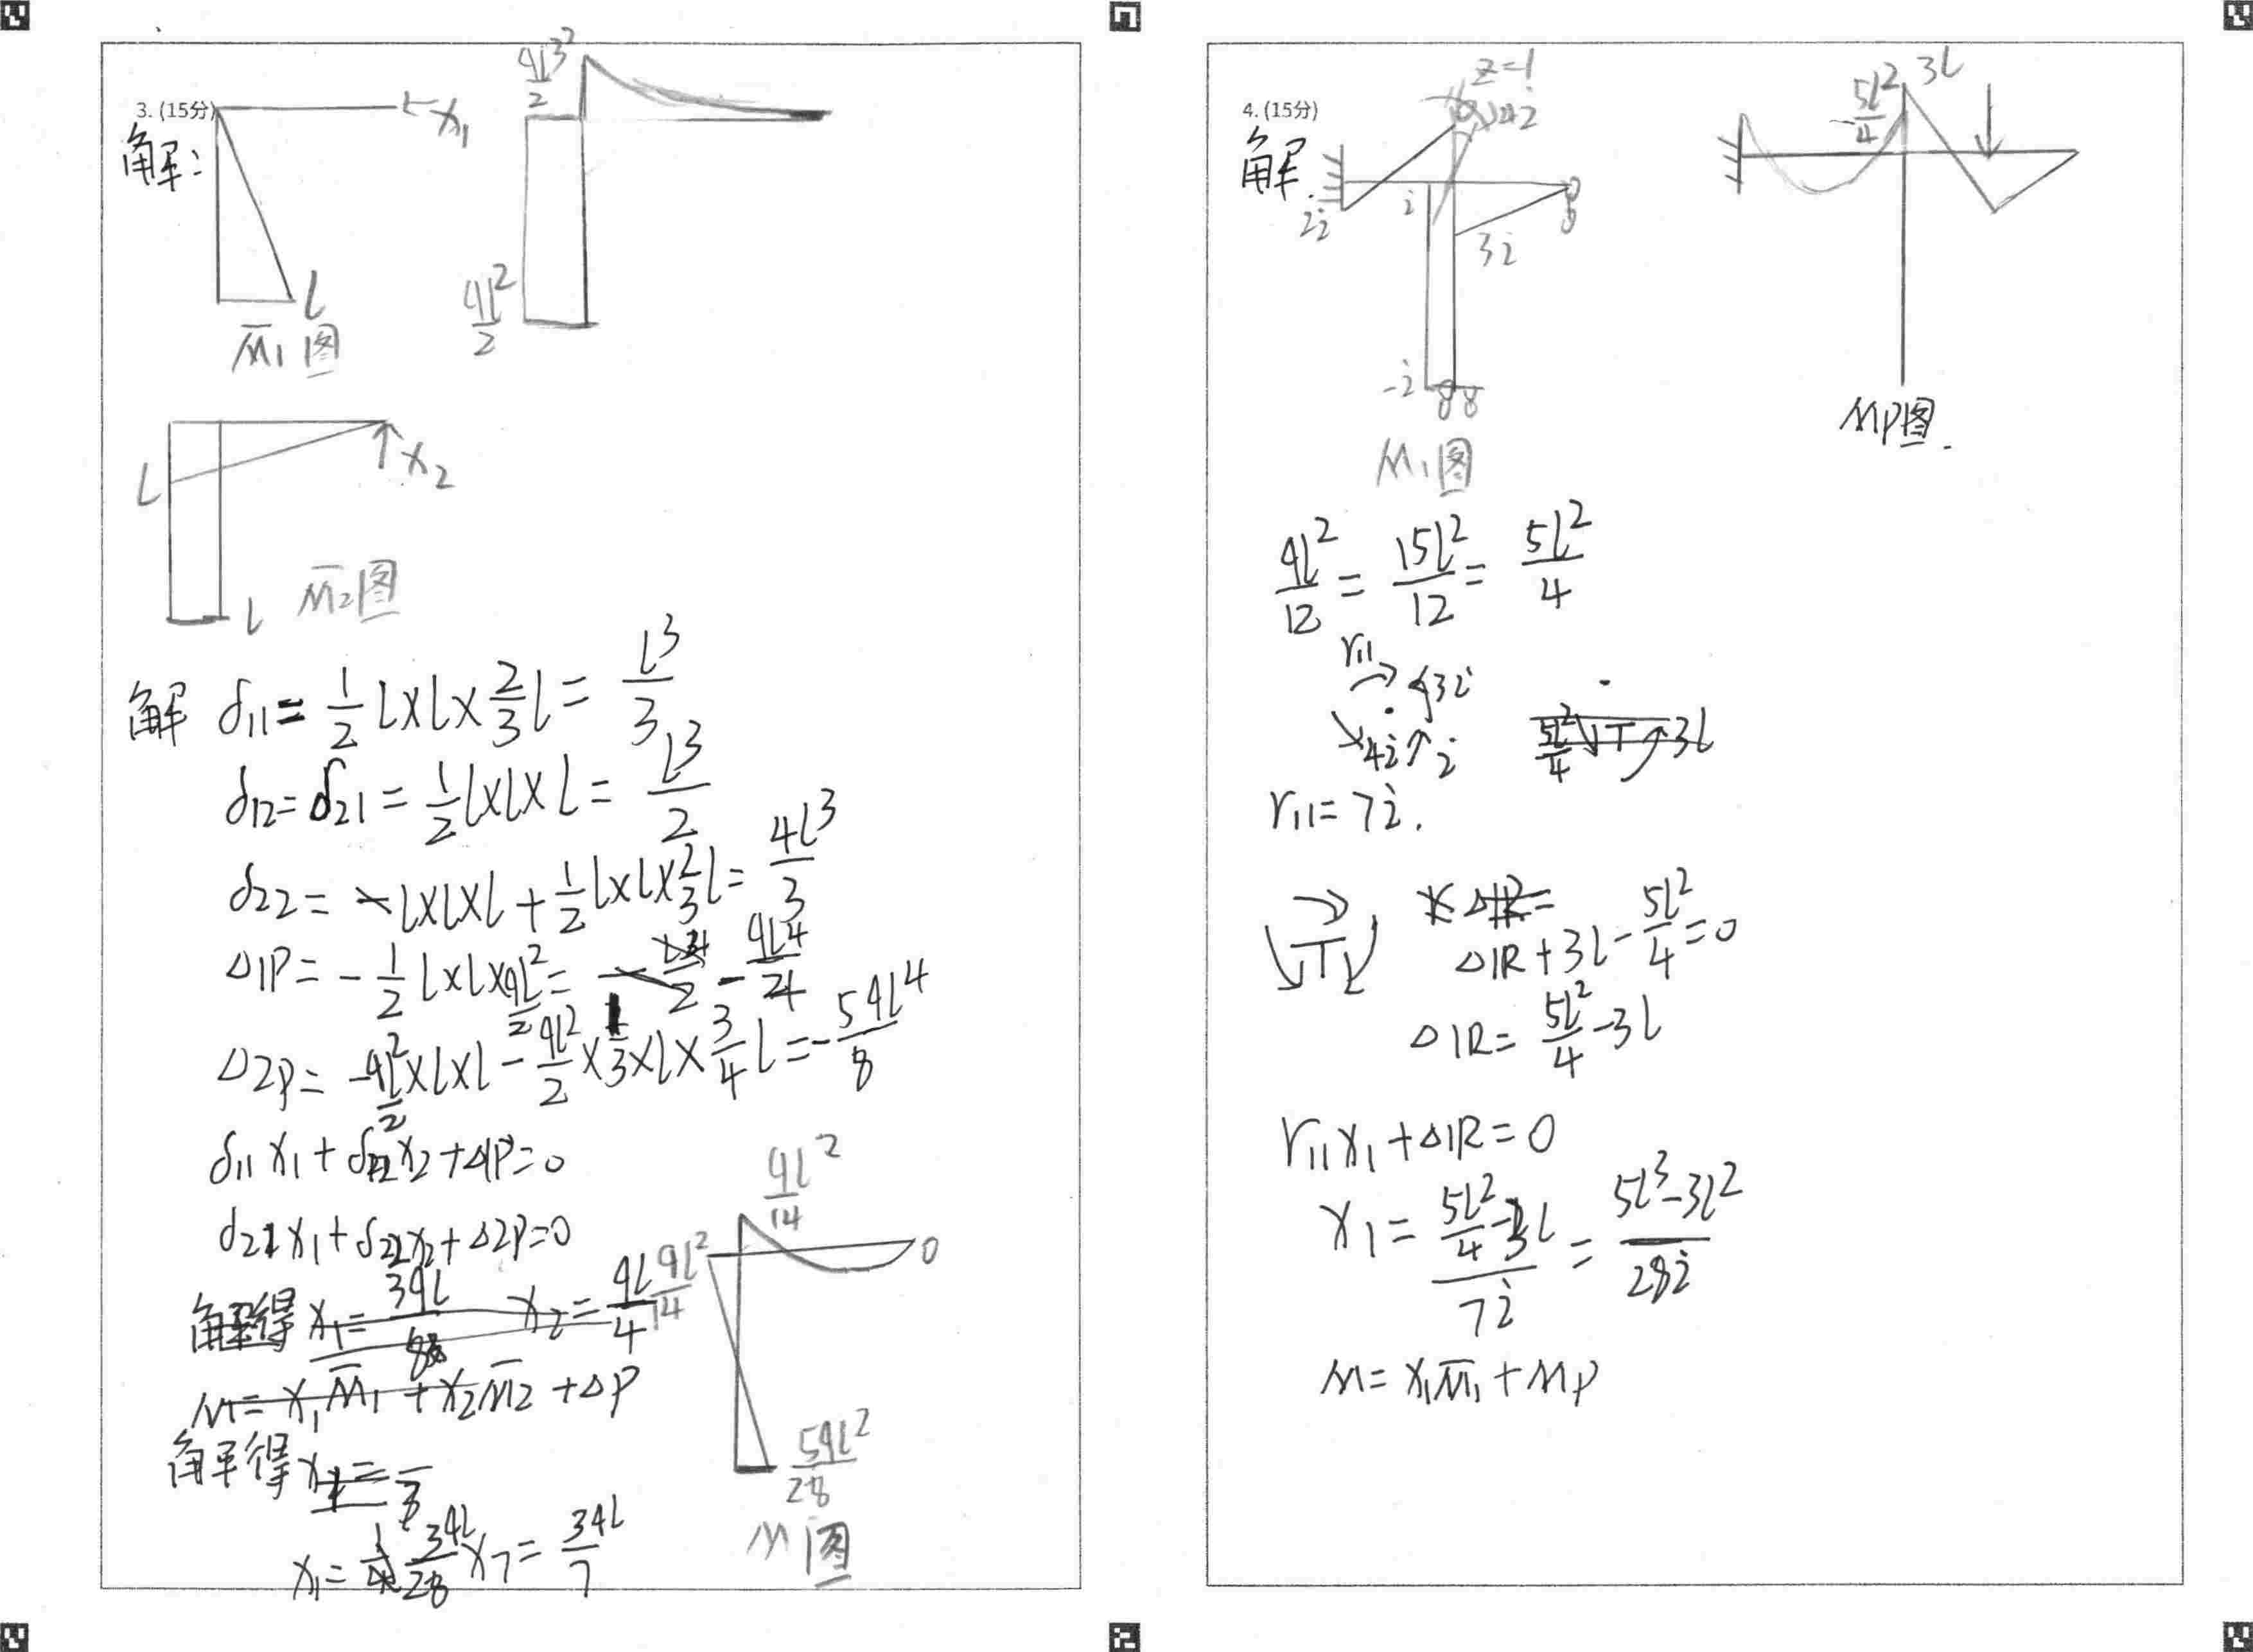 3. (15分)
解:
← X₁
l
M̄₁图
ql²/2
ql²/2
l
X₂
l
M̄₂图
解 δ₁₁ = 1/2 l×l×2/3 l = l³/3
δ₁₂ = δ₂₁ = 1/2 l×l×l = l³/2
δ₂₂ = l×l×l + 1/2 l×l×2/3 l = 4l³/3
Δ1P = - 1/2 l×l×ql²/2 = - ql⁴/4
Δ2P = -ql²/2 ×l×l - ql²/2 × 1/3 ×l× 3/4 l = - 5ql⁴/8
δ₁₁X₁ + δ₁₂X₂ + Δ1P = 0
δ₂₁X₁ + δ₂₂X₂ + Δ2P = 0
解得 X₁ = 3ql/8 X₂ = ql/4
M = X₁M̄₁ + X₂M̄₂ + ΔP
解得
X₁ = 3ql/28 × 7 = 3ql/7
ql²/14
ql²/14
0
5ql²/28
M图
4. (15分)
解.
z=1
4i
2i
i
3i
-i
M₁图
5l²/4
3l
MP图.
ql²/12 = 15l²/12 = 5l²/4
r₁₁
3i
4i
i
5l²/4
3l
r₁₁ = 7i.
Δ1R + 3l - 5l²/4 = 0
Δ1R = 5l²/4 - 3l
r₁₁X₁ + Δ1R = 0
X₁ = (5l²/4 - 3l)/7i = (5l³ - 3l²)/28i
M = X₁M̄₁ + MP